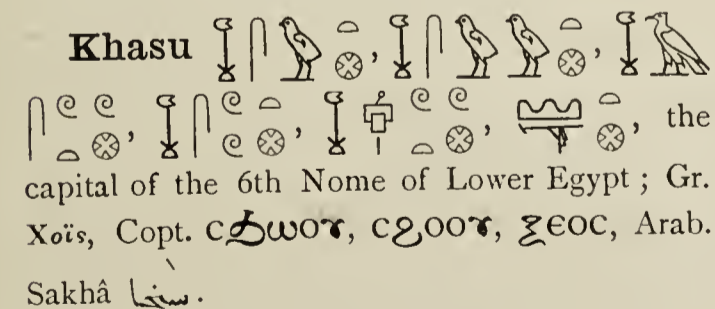 Khasu 𓆼𓋴𓅱𓏏𓊖, 𓆼𓋴𓅱𓅱𓏏𓊖, 𓆼𓄿
𓋴𓏲𓏲𓏏𓊖, 𓆼𓋴𓏲𓏏𓏲𓊖, 𓆼𓏲𓏲𓏏𓊖, 𓏏𓊖, the
capital of the 6th Nome of Lower Egypt; Gr.
Xoïs, Copt. ⲥϧⲱⲟⲩ, ⲥϩⲟⲟⲩ, ⲝⲉⲟⲥ, Arab.
Sakhâ سخا.